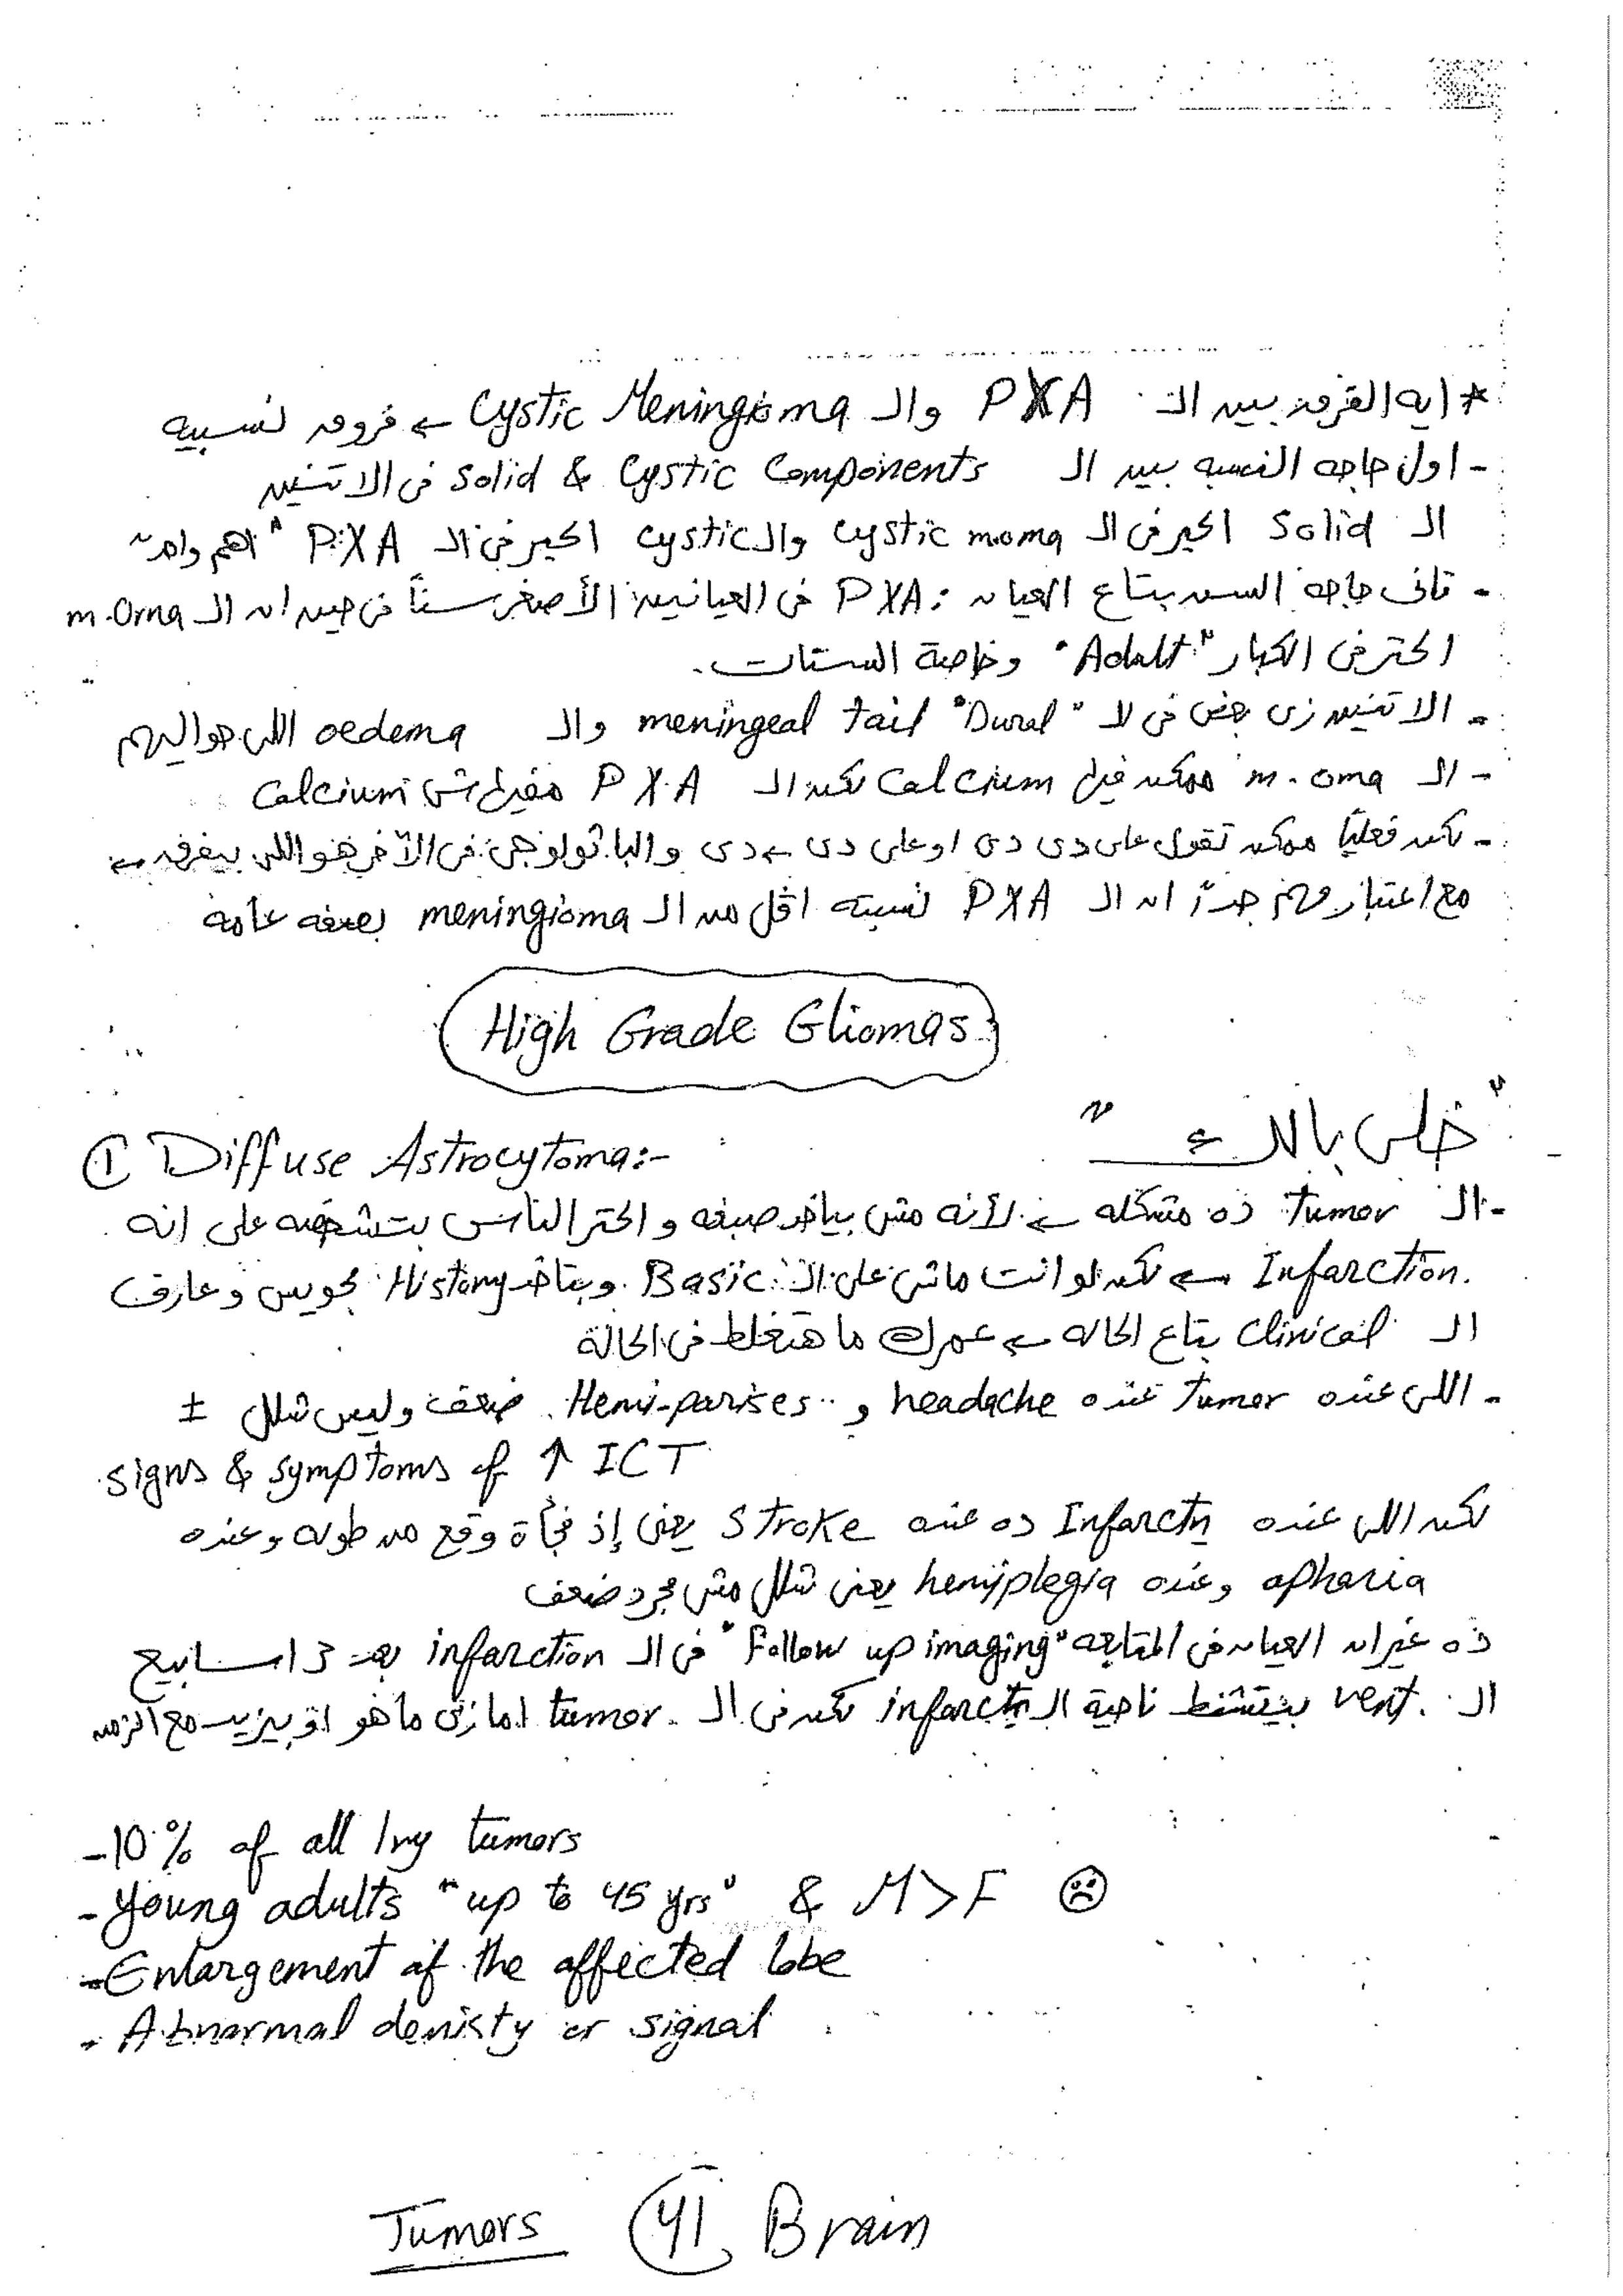 * ايه الفرق بين الـ PXA والـ Cystic Meningioma ← فروق نسبيه
- اول حاجه النسبه بين الـ Solid & Cystic Components فى الاتنين
الـ Solid اكبر فى الـ cystic m.oma والـ cystic اكبر فى الـ PXA "اهم واحد"
- تانى حاجه السن بتاع العيان : PXA فى العيانين الأصغر سناً فى حين ان الـ m.oma
اكتر فى الكبار "Adult" وخاصة الستات.
- الاتنين زى بعض فى الـ "Dural" meningeal tail والـ oedema اللى حواليهم
- الـ m.oma ممكن فيها Calcium لكن الـ PXA مفيهاش Calcium
- لكن فعلياً ممكن تقول على دى دى او على دى ← دى والباثولوجى فى الآخر هو اللى بيفرق ←
مع اعتبار مهم جداً ان الـ PXA نسبته اقل من الـ meningioma بصفه عامة
High Grade Gliomas
"خلى بالك"
① Diffuse Astrocytoma:-
- الـ tumor ده مشكله ← لأنه مش بياخد صبغه و اكتر الناس بتشخصه على انه
Infarction. ← لكن لو انت ماشى على الـ Basic وبتاخد History كويس وعارف
الـ clinical بتاع الحاله ← عمرك ما هتغلط فى الحالة
- اللى عنده tumor عنده headache و Hemi-parises ضعف وليس شلل ±
signs & symptoms of ↑ ICT
لكن اللى عنده Infarctn ده عنده Stroke يعنى إذ فجأة وقع من طوله وعنده
aphasia وعنده hemiplegia يعنى شلل مش مجرد ضعف
ده غير ان العيان فى المتابعه "Follow up imaging" فى الـ infarction بعد 3 اسابيع
الـ vent. بيتشفط ناحية الـ infarctn لكن فى الـ tumor. اما زى ما هو او بيزيد مع الزمن
-10% of all 1ry tumors
- Young adults "up to 45 yrs" & M>F ☹
- Enlargement of the affected lobe
- Abnormal denisty or signal
Tumors 41 Brain